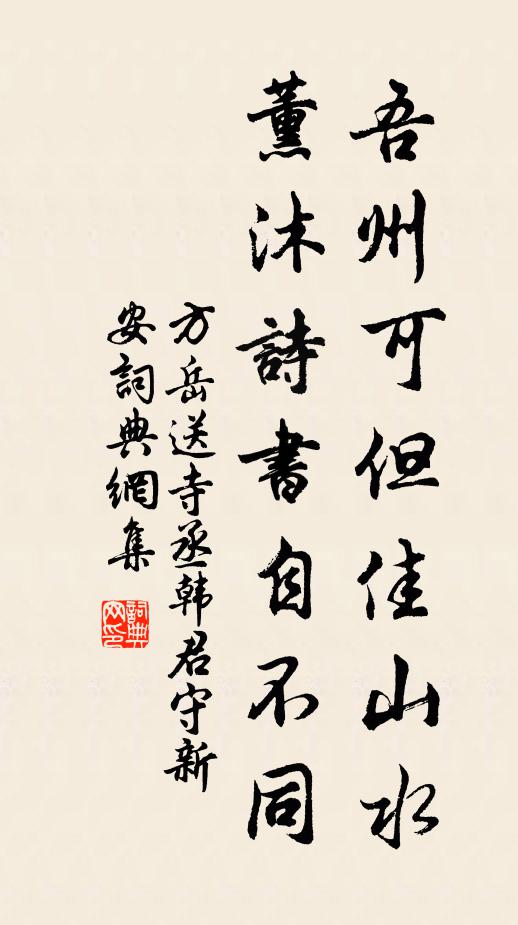 吾州可但佳山水
薰沐詩書自不同
方岳送寺丞韩君守新
安詞典網集
詞典
网印